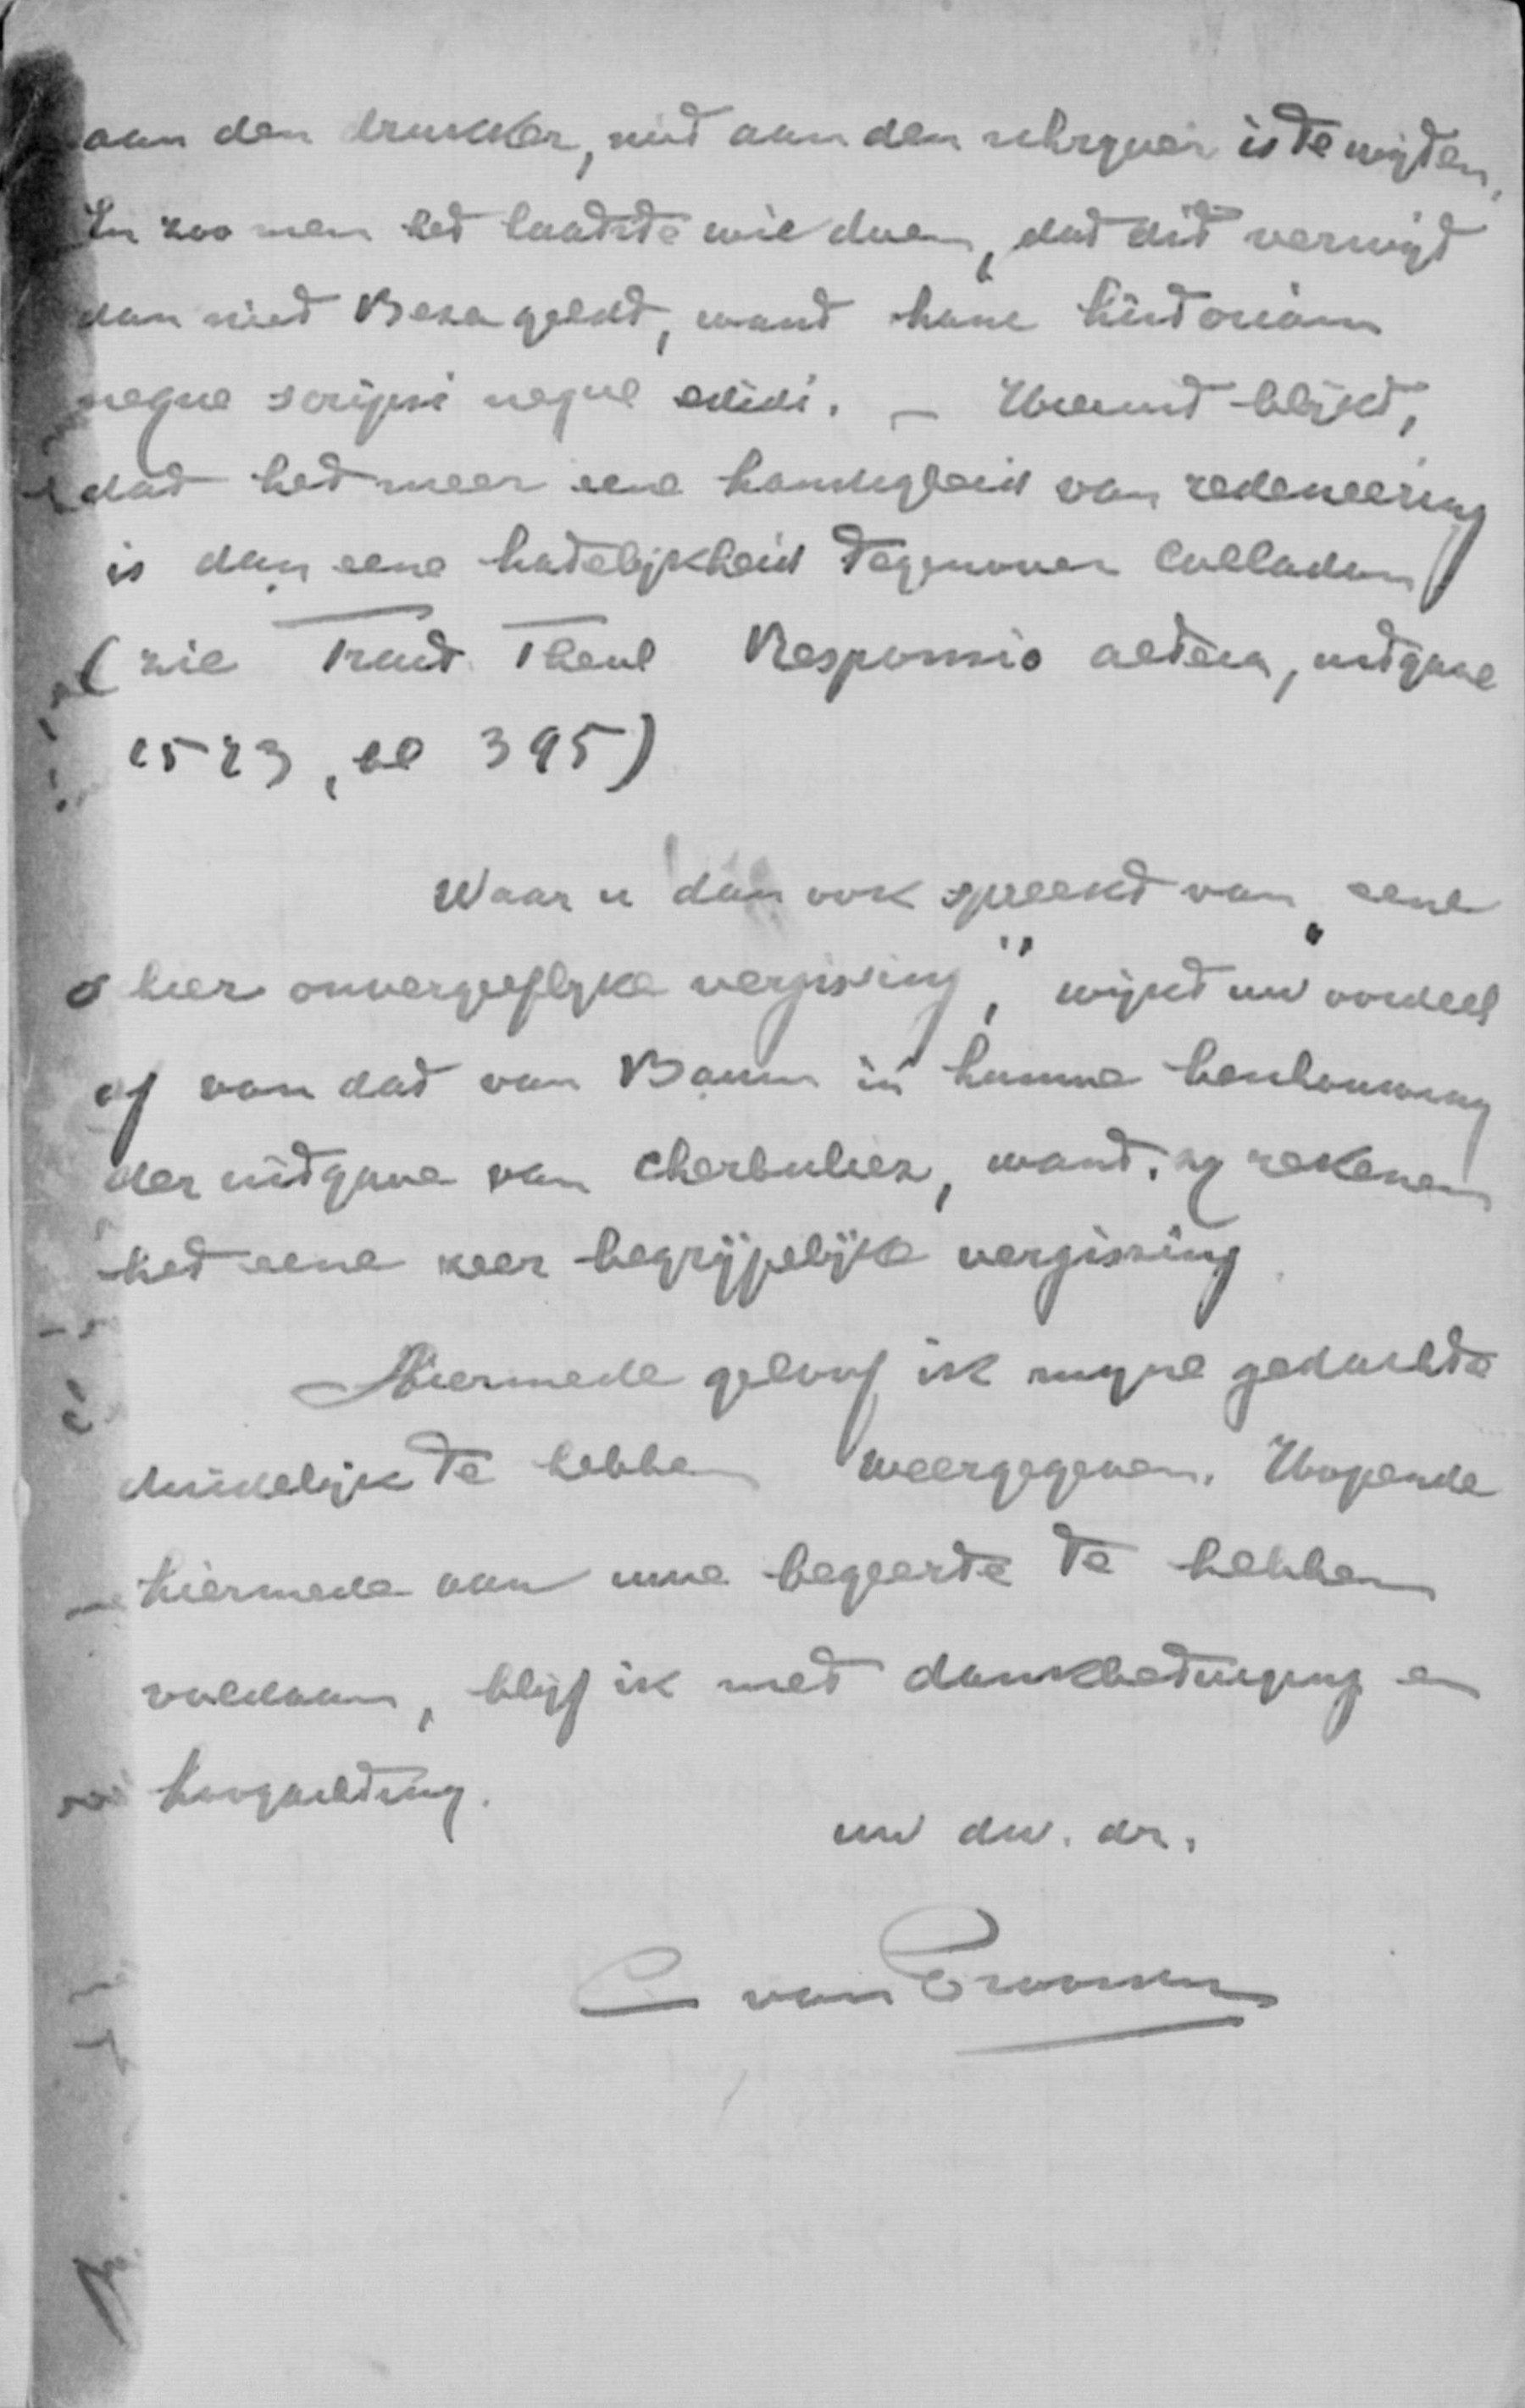 aan den drukker, niet aan den schrijver is te wijten,
En zoo men het laatste wil doen, dat dit verwijt
dan niet Beza geldt, want hanc historiam
neque scripsi neque edidi. – Hieruit blijkt,
dat het meer eene handigheid van redeneering
is dan eene hatelijkheid tegenover Colladon
(zie Tract. Theol Responsio altera, uitgave
1573, bl 395)
Waar u dan ook spreekt van „eene
hier onvergeeflijke vergissing", wijkt uw oordeel
af van dat van Baum in hunne beschouwing
der uitgave van Cherbuliez, want zij rekenen
het eene zeer begrijpelijke vergissing
Hiermede geloof ik mijne gedachte
duidelijk te hebben weergegeven. Hopende
hiermede aan uwe begeerte te hebben
voldaan, blijf ik met dankbetuiging en
hoogachting.
uw dw. dr.
C van Proosdij